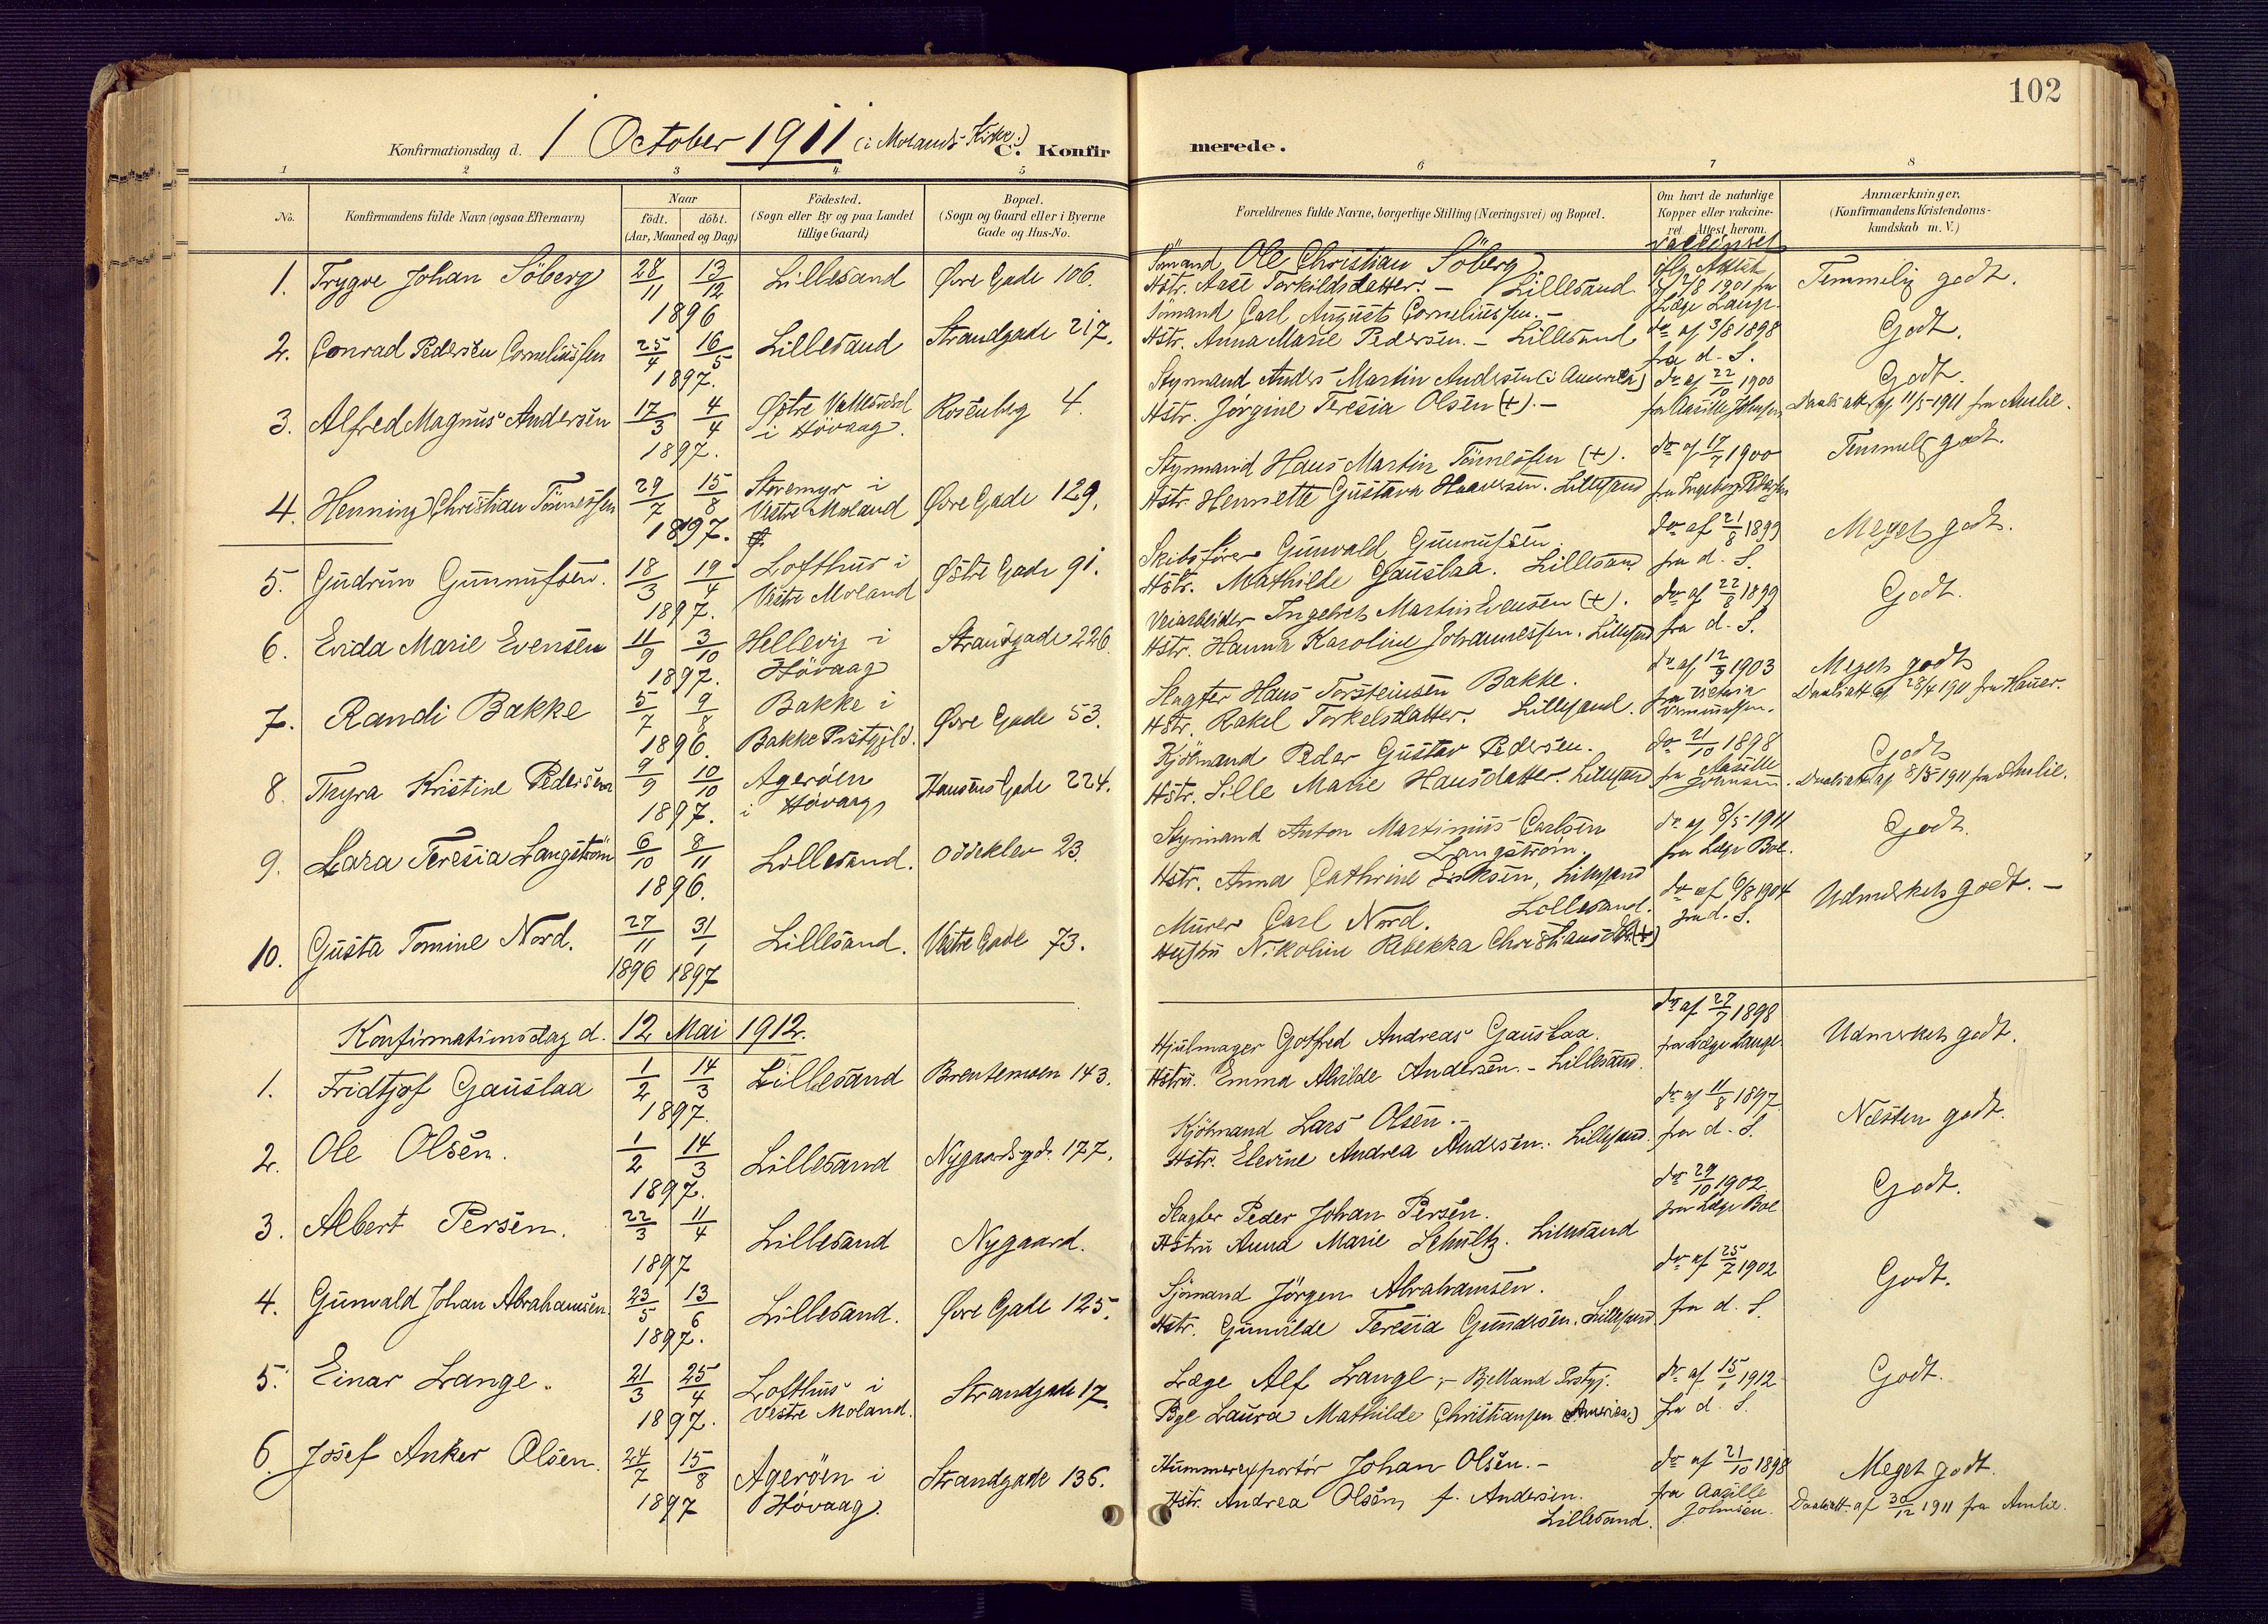 102
Konfirmationsdag d. 1 October 1911 (i Molands Kirke.) C. Konfirmerede.
1 2 3 4 5 6 7 8
No.
Konfirmandens fulde Navn (ogsaa Efternavn)
Naar
födt. döbt.
(Aar, Maaned og Dag)
Födested.
(Sogn eller By og paa Landet
tillige Gaard)
Bopæl.
(Sogn og Gaard eller i Byerne
Gade og Hus-No.
Forældrenes fulde Navne, borgerlige Stilling (Næringsvei) og Bopæl.
Om havt de naturlige
Kopper eller vakcine-
ret. Attest herom.
Anmærkninger.
(Konfirmandens Kristendoms-
kundskab m. V.)
1. Trygve Johan Söberg 28/11 13/12 1896 Lillesand Øvre Gade 106.
Sömand Ole Christian Söberg
Hstr. Aase Torkildsdatter. – Lillesand
vaccinset
ifg. Attest
af 2/8 1901 fra
Læge Lange.
Temmelig godt.
2. Conrad Pedersen Corneliussen 25/4 16/5 1897. Lillesand Strandgade 217.
Sömand Carl August Corneliussen. –
Hstr. Anna Marie Pedersen. – Lillesand
do af 3/8 1898
fra d. S.
Godt.
3. Alfred Magnus Andersen 17/3 4/4 1897. Østre Vallesverd
i Hövaag. Rosenberg 4.
Styrmand Anders Martin Andersen (i Amerika)
Hstr. Jörgine Teresia Olsen (+). –
do af 22/10 1900
fra Aasille Johnsen
Godt.
Daabsatt. af 11/5 1911 fra Amlie.
4. Henning Christian Tönnessen 29/7 15/8 1897. Storemyr i
Vestre Moland Øvre Gade 129.
Styrmand Hans Martin Tönnessen (+).
Hstr. Henriette Gustava Haaversen. Lillesand
do af 17/7 1900
fra Ingeborg Pedersen
Temmel. godt.
5. Gudrun Gunnufsen. 18/3 19/4 1897. Lofthus i
Vestre Moland Østre Gade 91.
Skibsförer Gunvald Gunnufsen
Hstr. Mathilde Gauslaa. Lillesand
do af 21/8 1899
fra d. S.
Meget godt.
6. Enda Marie Evensen 11/9 3/10 1897. Hellevig i
Hövaag Strandgade 226.
Veiarbeider Ingebret Martin Evensen (+).
Hstr. Hanna Karoline Johannessen. Lillesand
do af 22/8 1899
fra d. S.
Godt.
7. Randi Bakke 5/7 9/8 1896. Bakke i
Bakke Prstgjld. Øvre Gade 53.
Slagter Hans Torsteinsen Bakke.
Hstr. Rakel Torkelsdatter. Lillesand.
do af 12/9 1903
Meget godt
Daabsatt. af 28/4 1911 fra Hauer.
8. Thyra Kristine Pedersen 9/9 10/10 1897. Ageröen
i Hövaag Hansens Gade 224.
Kjöbmand Peder Gustav Pedersen.
Hstr. Lille Marie Hansdatter. Lillesand
do 21/10 1898
fra Aasille
Johnsen
Godt
Daabsatt. af 8/5 1911 fra Amlie.
9. Lara Teresia Langström 6/10 8/11 1896. Lillesand. Oddeklev 23.
Styrmand Anton Martinius Carlsen
Langström.
Hstr. Anna Cathrine Eriksen, Lillesand
do af 8/5 1911
fra Læge Boe.
Godt.
10. Gusta Tomine Nord. 27/11 1896 31/1 1897 Lillesand. Vestre Gade 73.
Murer Carl Nord. Lillesand.
Hustru Nikoline Rebekka Christiansdtr. (+)
do af 6/8 1904
fra d. S.
Udmerket godt. –
Konfirmationsdag d. 12 Mai 1912.
1. Fridtjof Gauslaa 1/2 14/3 1897. Lillesand Brentemoen 143.
Hjulmager Gotfred Andreas Gauslaa.
Hstru. Emma Alvilde Andersen. – Lillesand.
do af 27/7 1898
fra Læge Lange.
Udmerket godt.
2. Ole Olsen. 1/2 14/3 1897. Lillesand Nygaardsgd. 177.
Kjöbmand Lars Olsen. –
Hstr. Elevine Andrea Andersen. Lillesand.
do af 11/8 1897
fra d. S.
Næsten godt.
3. Albert Persen. 22/3 11/4 1897 Lillesand Nygaard.
Slagter Peder Johan Persen.
Hstru Anna Marie Schultz. Lillesand
do 29/10 1902
fra Læge Boe
Godt.
4. Gunvald Johan Abrahamsen. 23/5 13/6 1897. Lillesand. Øvre Gade 125.
Sjömand Jörgen Abrahamsen.
Hstr. Gunvilde Teresia Gundersen. Lillesand
do af 25/7 1902
fra d. S.
Godt.
5. Einar Lange. 21/3 25/4 1897. Lofthus i
Vestre Moland. Strandgade 17.
Læge Alf Lange; – Bjelland Prstgj.
Pge Laura Mathilde Christiansen (Amerika)
do af 15/1 1912
fra d. S.
Godt.
6. Josef Anker Olsen. 24/7 15/8 1897 Ageröen i
Hövaag. Strandgade 136.
Hummerexportör Johan Olsen. –
Hstr. Andrea Olsen, f. Andersen.
Lillesand.
do af 21/10 1898
fra Aasille
Johnsen.
Meget godt.
Daabsatt. af 30/12 1911 fra Amlie.